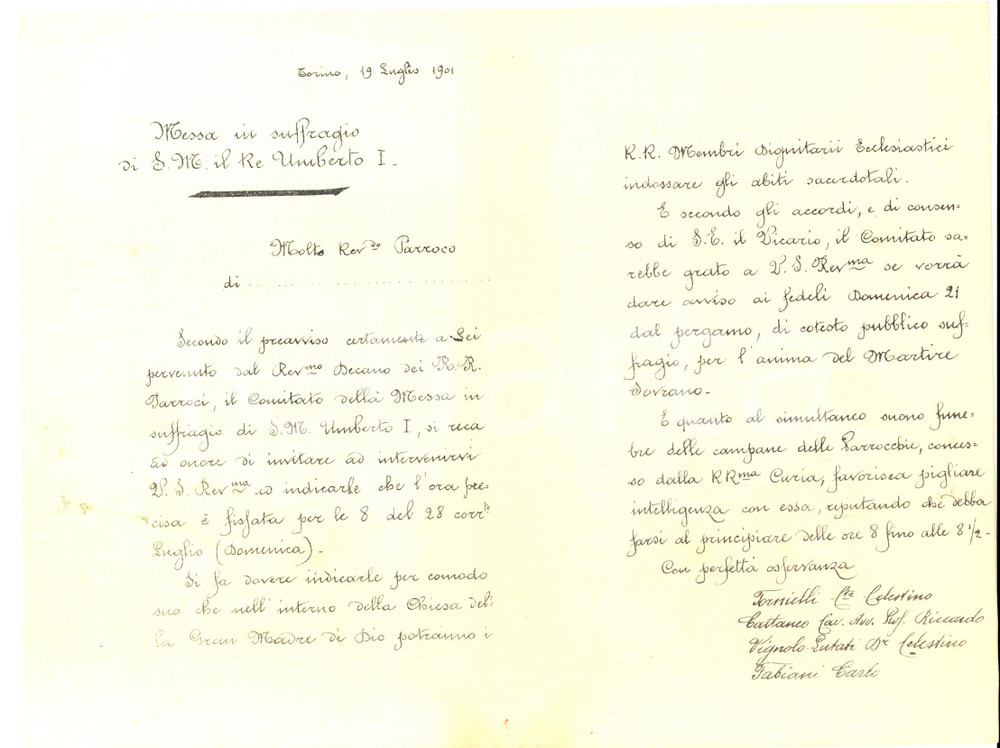 Torino, 19 Luglio 1901
Messa in suffragio
di S. M. il Re Umberto I.
Molto Rev.do Parroco
di ................................
Secondo il preavviso certamente a Lei
pervenuto dal Rev.mo Decano dei R. R.
Parroci, il Comitato della Messa in
suffragio di S. M. Umberto I, si reca
ad onore di invitare ad intervenirvi
V. S. Rev.ma e ad indicarle che l'ora pre=
cisa è fissata per le 8 del 28 corr.te
Luglio (Domenica).
Si fa dovere indicarle per comodo
suo che nell'interno della Chiesa del=
la Gran Madre di Dio potranno i
R. R. Membri Dignitarii Ecclesiastici
indossare gli abiti sacerdotali.
E secondo gli accordi, e di consen=
so di S. E. il Vicario, il Comitato sa=
rebbe grato a V. S. Rev.ma se vorrà
dare avviso ai fedeli Domenica 21
dal pergamo, di cotesto pubblico suf=
fragio, per l'anima del Martire
Sovrano.
E quanto al simultaneo suono fune=
bre delle campane delle Parrocchie, conces=
so dalla RR.ma Curia, favorisca pigliare
intelligenza con essa, reputando che debba
farsi al principiare delle ore 8 fino alle 8 1/2.
Con perfetta osservanza
Tornielli C.te Celestino
Cattaneo Cav. Avv. Prof. Riccardo
Vignolo-Lutati D.r Celestino
Fabiani Carlo